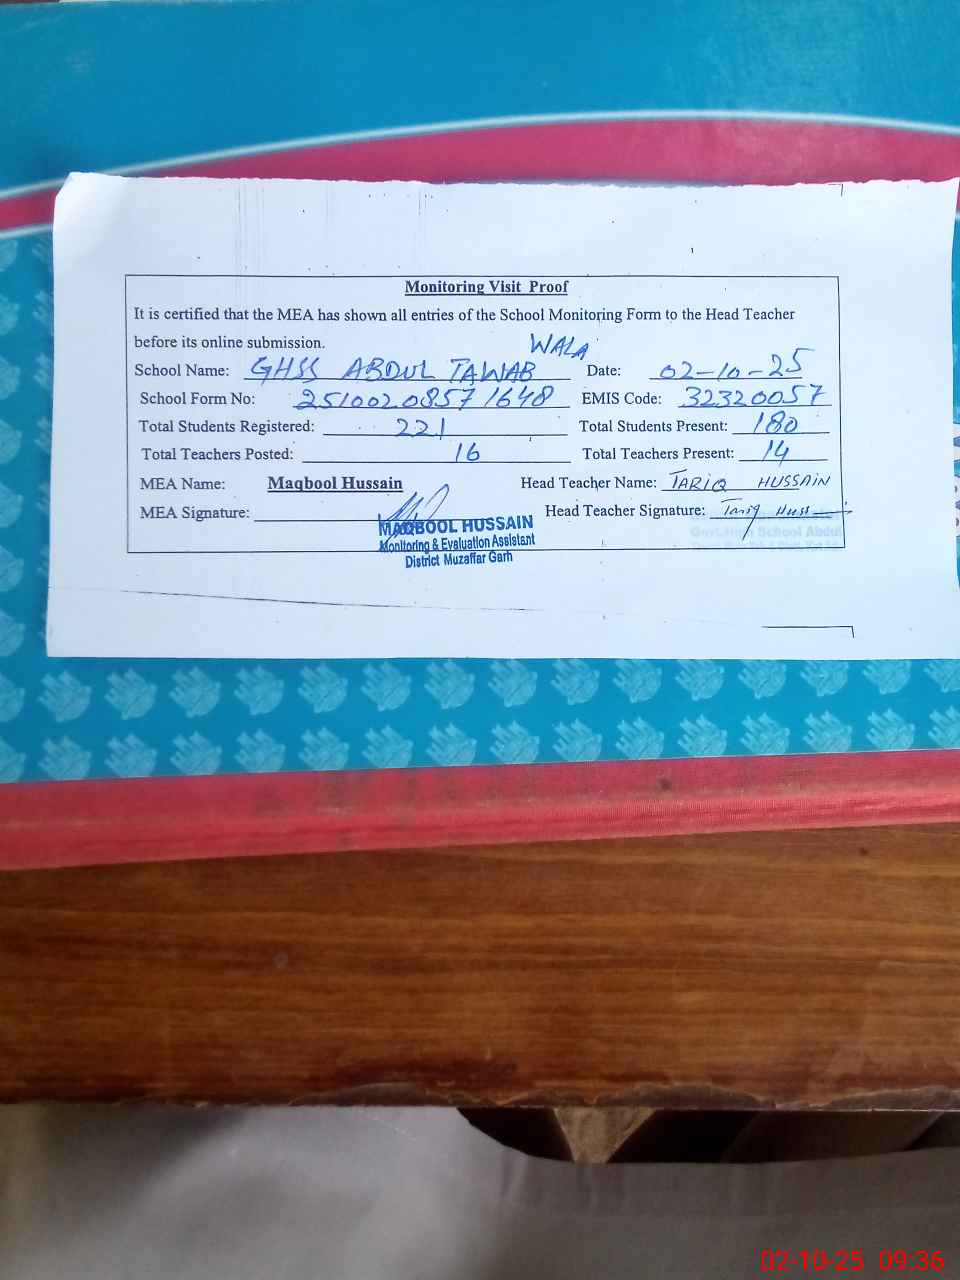 Monitoring Visit Proof
It is certified that the MEA has shown all entries of the School Monitoring Form to the Head Teacher
before its online submission.
School Name: GHSS ABDUL TAWAB WALA Date: 02-10-25
School Form No: 25100208571648 EMIS Code: 32320057
Total Students Registered: 221 Total Students Present: 180
Total Teachers Posted: 16 Total Teachers Present: 14
MEA Name: Maqbool Hussain Head Teacher Name: TARIQ HUSSAIN
MEA Signature: Head Teacher Signature: Tariq Huss
MAQBOOL HUSSAIN
Monitoring & Evaluation Assistant
District Muzaffar Garh
School Abdul
02-10-25 09:36